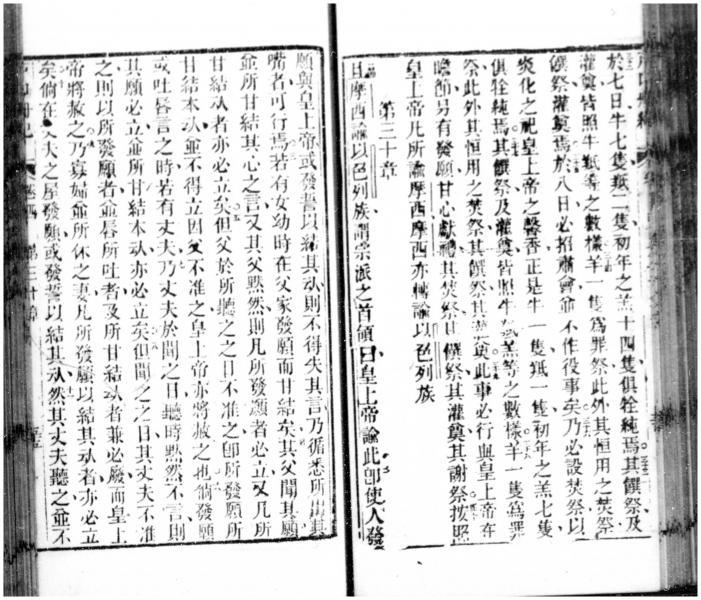 於七日牛七隻羝二隻初年之羔十四隻俱牷純焉其饌祭及
灌奠皆照牛羝等之數樣羊一隻爲罪祭此外其恒用之焚祭
饌祭灌奠焉於八日必招肅會爺不作役事矣乃必設焚祭以
炎化之祀皇上帝之馨香正是牛一隻羝一隻初年之羔七隻
俱牷純焉其饌祭及灌奠皆照牛羝羔等之數樣羊一隻爲罪
祭此外其恒用之焚祭其饌祭其灌奠此事必行與皇上帝在
瞻節另有發願甘心獻禮其焚祭其饌祭其灌奠其謝祭按照
皇上帝凡所諭摩西摩西亦轉諭以色列族
第三十章
且摩西諭以色列族諸宗派之首領曰皇上帝諭此卽使人發
願與皇上帝或發誓以結其㘞則不得失其言乃循悉所出其
嘴者可行焉若有女幼時在父家發願而甘結矣其父聞其願
並所甘結其心之言又其父默然則凡所發願者必立又凡所
甘結㘞者亦必立矣但父於所聽之之日不准之卽所發願所
甘結本㘞並不得立因父不准之皇上帝亦將赦之也倘發願
或吐唇言之時若有丈夫乃丈夫於聞之日聽時默然不言則
其願必立並所甘結本㘞亦必立矣但聞之之日其丈夫不准
之則以所發願者並唇所吐者及所甘結㘞者兼必廢而皇上
帝將赦之乃寡婦並所休之妻凡所發願以結其㘞者亦必立
矣倘在丈夫之屋發願或發誓以結其㘞然其丈夫聽之並不
第三十章